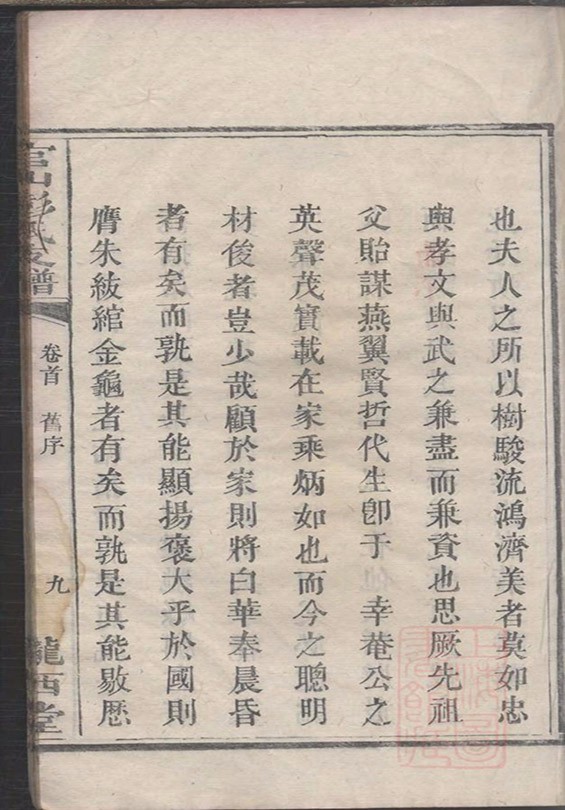 也夫人之所以樹駿流鴻濟美者莫如忠
與孝文與武之兼盡而兼資也思厥先祖
父貽謀燕翼賢哲代生卽于 幸菴公之
英聲茂實載在家乘炳如也而今之聰明
材俊者豈少哉顧於家則將白華奉晨昏
者有矣而孰是其能顯揚褒大乎於國則
膺朱紱綰金龜者有矣而孰是其能敭歷
官山彭氏支譜
卷首 舊序
九
隴西堂